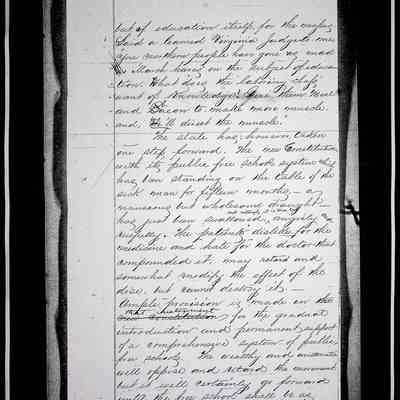 but of education itself, for the masses,
Said a learned Virginia Judge to me:
"you northern people have gone as mad
as March hares on the subject of educa
tion. What does the laboring chap
want of Knowledge? Give them Meal
and Bacon to make more muscle
and I'll direct the muscle."
The state has, however, taken
one step forward. The new Constitution
with its public free school system
has been standing on the table of the
sick man for fifteen months — a
nauseous but wholesome draught —
has just been swallowed, angrily &
The patients' dislike for the
medicine and hate for the doctor that
compounded it, may retard and
somewhat modify the effect of the
dose, but cannot destroy it. —
Ample provision is made in the
that instrument
new Constitution, for the gradual
introduction and permanent support
of a comprehensive system of public
free schools. The wealthy and
will oppose and retard the movement
but it will certainly go forward
until the free school shall be as